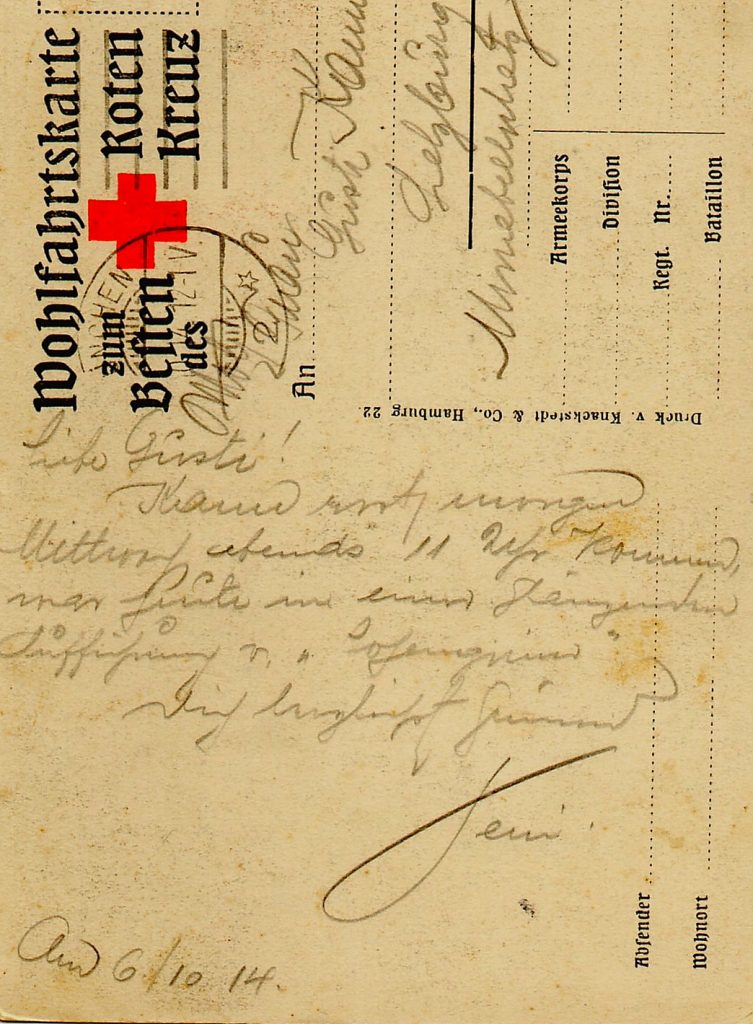 Wohlfahrtskarte
zum Roten
Besten Kreuz
des
An
Gusti
Salzburg
Armeekorps
Division
Regt. Nr.
Bataillon
Druck v. Knackstedt & Co., Hamburg 22.
Liebe Gusti!
Kann erst morgen
Mittwoch abends 11 Uhr kommen,
war heute in einer glänzenden
Aufführung v. "Lohengrin"
Dich herzlichst
Am 6/10 14.
Absender
Wohnort